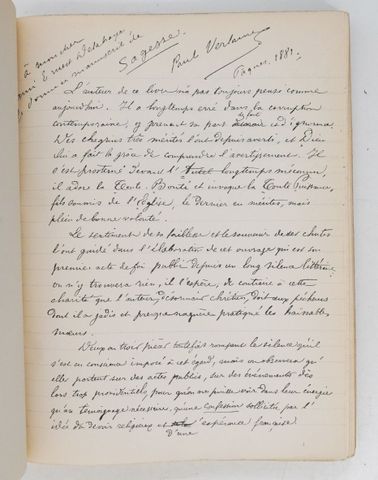 à mon cher
ami Ernest Delahaye
je donne ce manuscrit de
Sagesse.
Paul Verlaine
Pâques, 1881.
L'auteur de ce livre n'a pas toujours pensé comme
aujourd'hui. Il a longtemps erré dans la corruption
contemporaine, y prenant sa part de faute et d'ignorance.
Des chagrins très mérités l'ont depuis averti, et Dieu
lui a fait la grâce de comprendre l'avertissement. Il
s'est prosterné devant l'Autel longtemps méconnu,
il adore la Toute-Bonté et invoque la Toute-Puissance,
fils soumis de l'Église, le dernier en mérites, mais
plein de bonne volonté.
Le sentiment de sa faiblesse et le souvenir de ses chutes
l'ont guidé dans l'élaboration de cet ouvrage qui est son
premier acte de foi public depuis un long silence littéraire :
on n'y trouvera rien, il l'espère, de contraire à cette
charité que l'auteur, désormais chrétien, doit aux pécheurs
dont il a jadis et presque naguère pratiqué les haïssables
mœurs.
Deux ou trois pièces toutefois rompent le silence qu'il
s'est en conscience imposé à cet égard, mais on observera qu'
elles portent sur des actes publics, sur des événements dès
lors trop providentiels pour qu'on ne puisse voir dans leur énergie
qu'un témoignage nécessaire, qu'une confession sollicitée par l'
idée du devoir religieux et d'une espérance française.